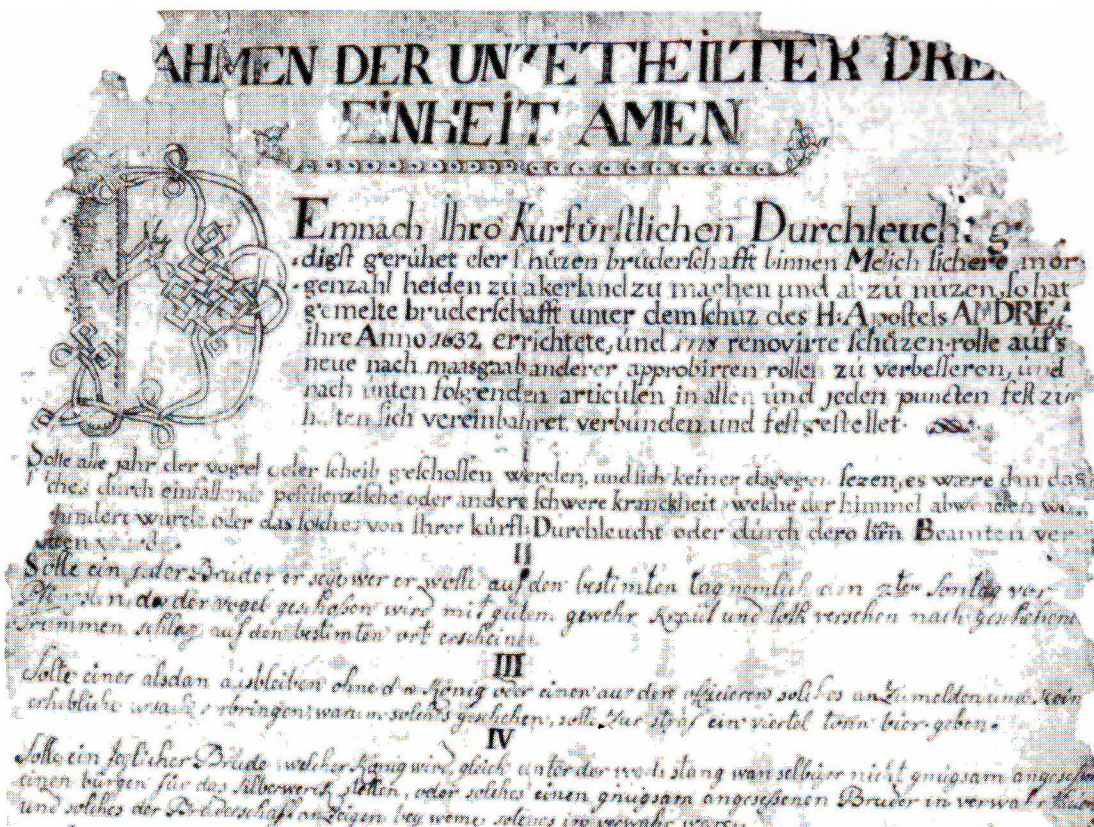 NAHMEN DER UNZETHEILTER DREI
EINHEIT AMEN
DEmnach Ihro Kurfürstlichen Durchleucht: g
digst gerühet der schüzen brüderschafft binnen Melich sichere mor
genzahl heiden zü akerland zu machen und ab zü nüzen, so hat
gemelte brüderschafft unter dem schuz des H: Apostels ANDREA
ihre Anno 1632 errichtete, und 1778 renovirte schüzen-rolle aufs
neue nach maasgaab anderer approbirten rollen zü verbesseren, und
nach ünten folgenden articülen in allen und jeden püncten fest zu
halten sich vereinbahret, verbunden, und festgestellet.
Solte alle jahr der vogel oder scheib geschossen werden, und sich keiner dagegen sezen, es wære dan das
ches durch einfallende pestilenzische oder andere schwere kranckheit, welche der himmel abwenden
hindert würde oder das solches von Ihrer kürfl: Durchleucht oder durch dero Beamten ver
II
Solle ein jeder Bruder er seye wer er wolle auf den bestimten tag nemlich den 2ter sontag vor
der vogel geschossen wird mit gütem gewehr Kraut und loth versehen nach geschehenem
Trummen schlag auf den bestimten ort erscheinen
III
Solle einer alsdan aüsbleiben ohne den König oder einen aus den officieren solches anzümelden und kein
erhebliche ursach erbringen, warum solches geschehen, solle zur straf ein viertel tonn bier geben.
IV
Solle ein jeglicher Bruder welcher König wird, gleich unter der stang wan selbiger nicht gnugsam
einen bürgen für das silberwerck stellen, oder solches einen gnugsam angesessenen Bruder in
und solches der Brüderschaft anzeigen bey weme solches in verwahr